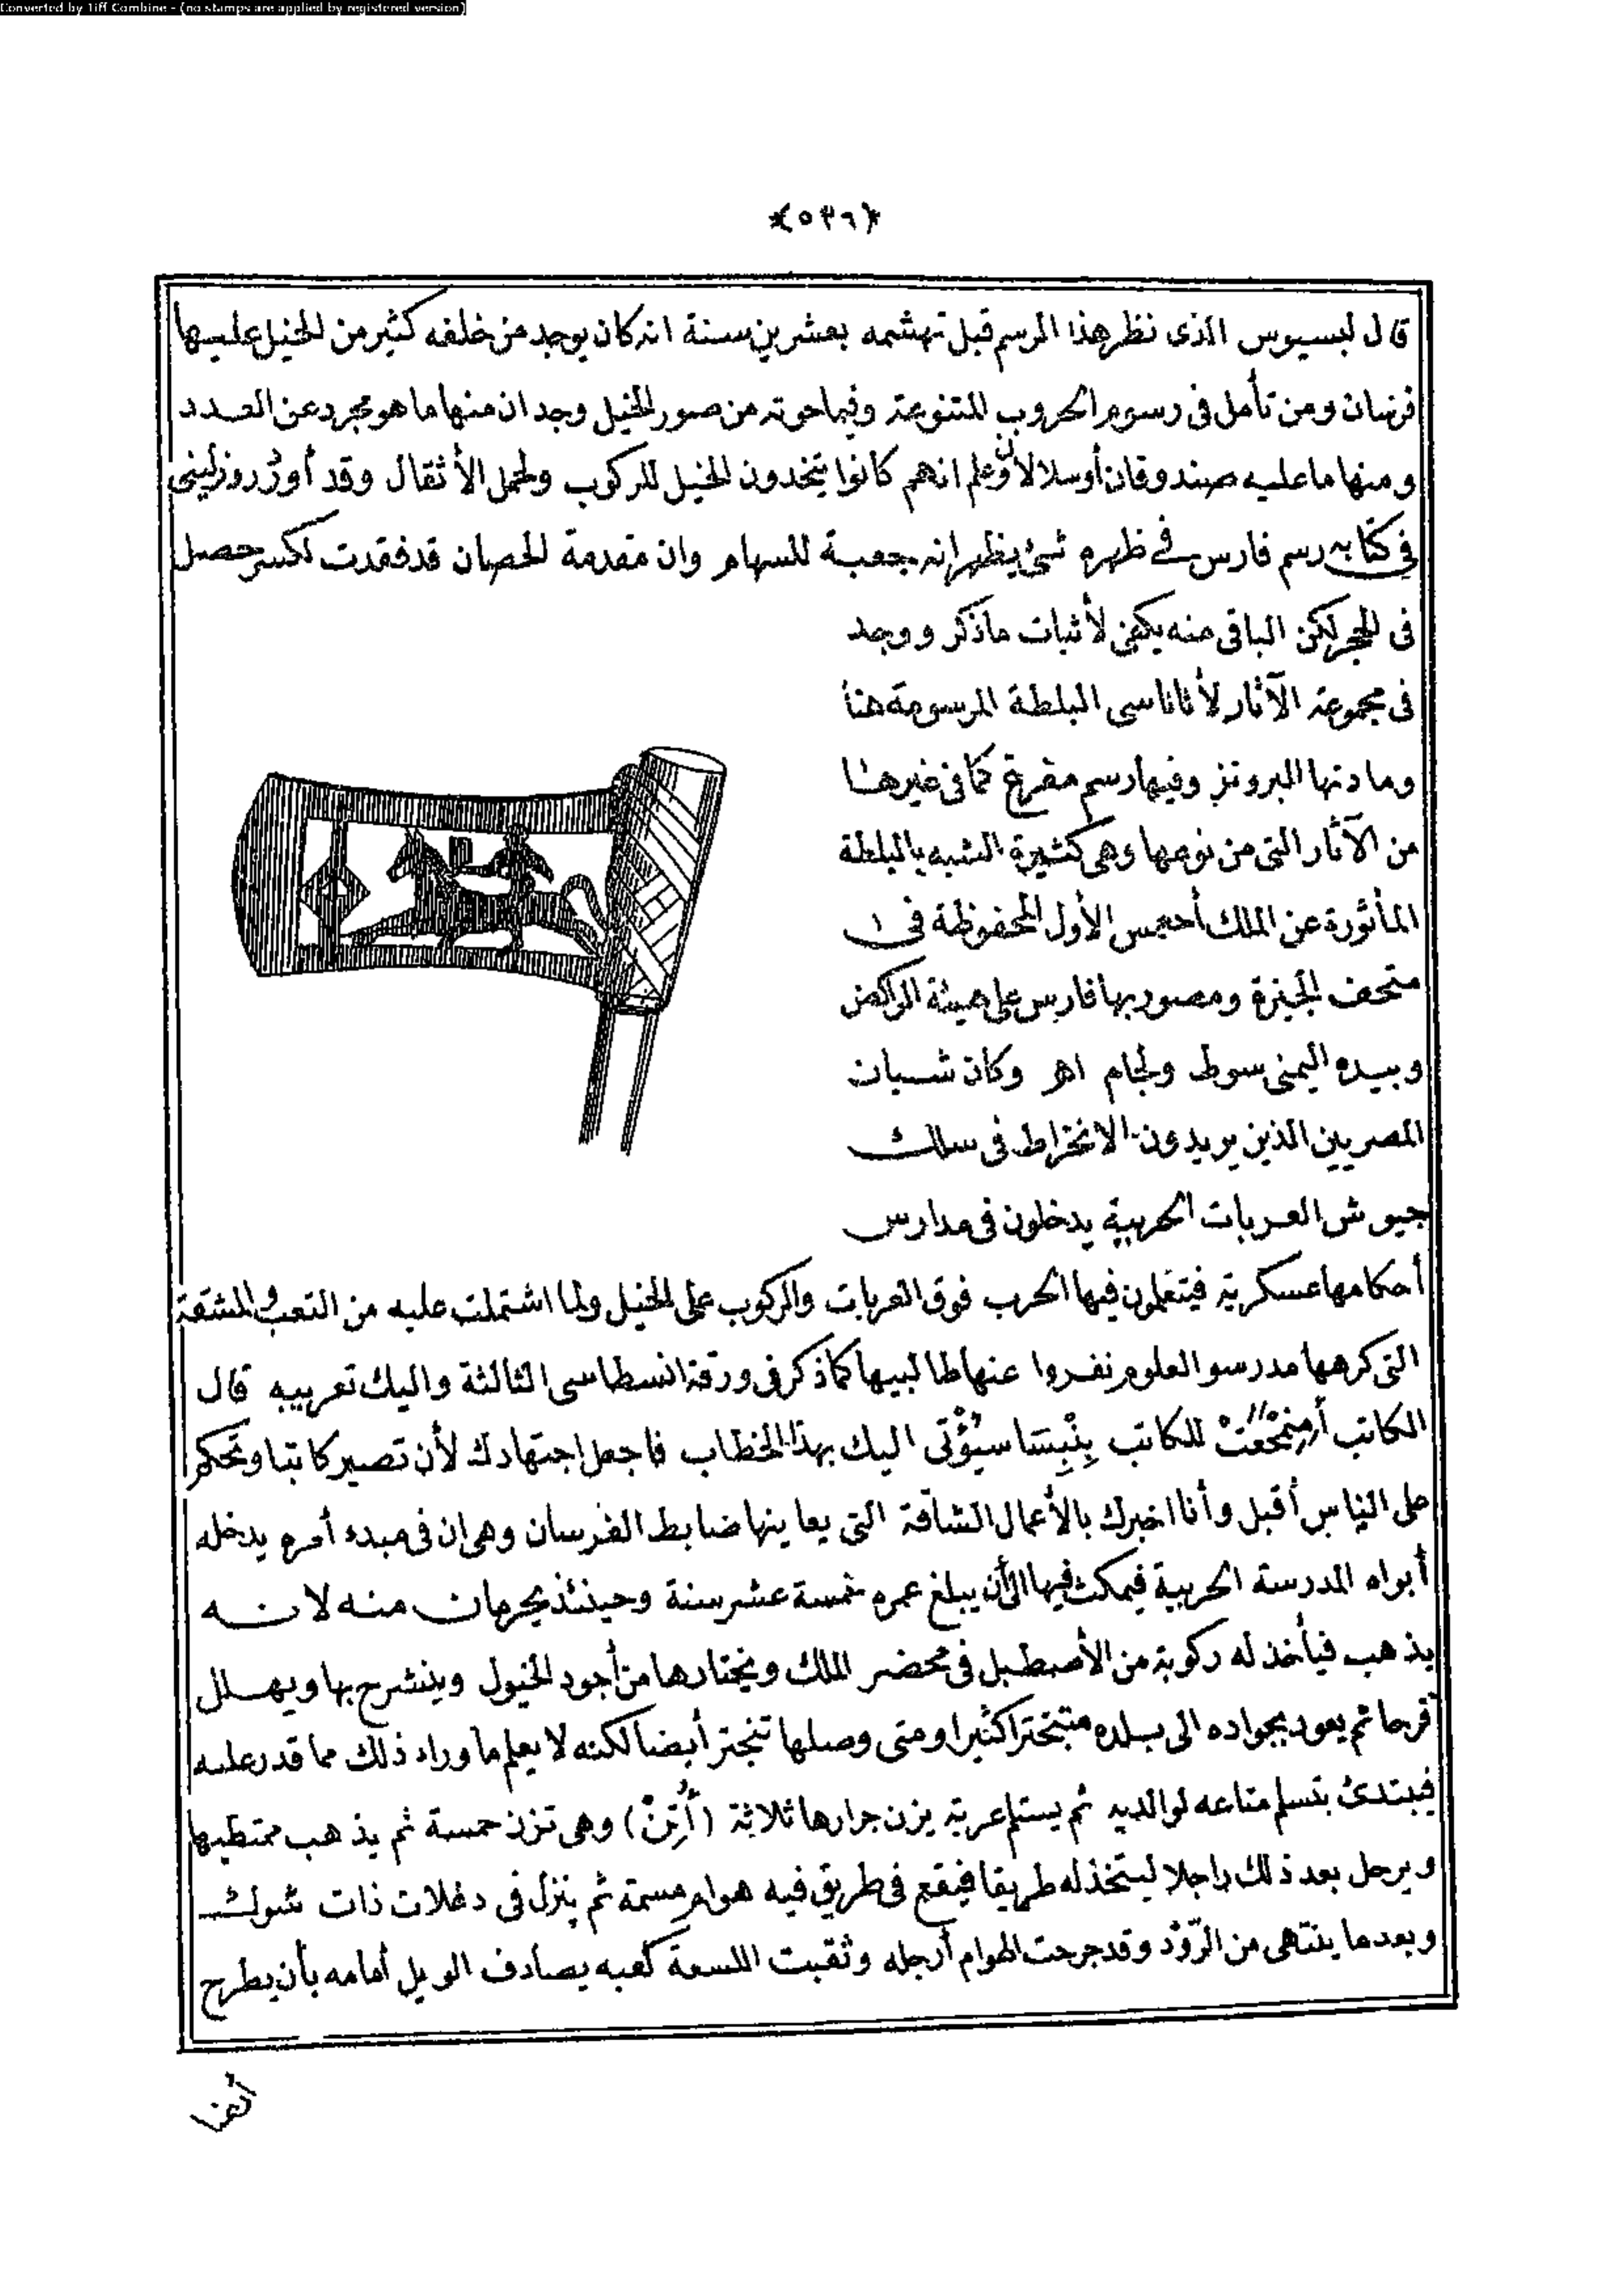 Converted by Tiff Combine - (no stamps are applied by registered version)
*(٥٣٦)*
قال لبسيوس الذى نظر هذا الرسم قبل تهشمه بعشرين سنة انه كان يوجد من خلفه كثير من الخيل عليها
فرسان ومن تأمل فى رسوم الحروب المتنوعة وفيما حوته من صور الخيل وجد ان منها ما هو مجرد عن العدد
ومنها ما عليه صندوقان أو سلالان وعلم انهم كانوا يتخذون الخيل للركوب ولحمل الأثقال وقد أورد روزلينى
فى كتابه رسم فارس فى ظهره شئ يظهر انه جعبة للسهام وان مقدمة الحصان قد فقدت لكسر حصل
فى الحجر لكن الباقى منه يكفى لأثبات ماذكر ووجد
فى مجموعة الآثار لأناناسى البلطة المرسومة هنا
ومادتها البرونز وفيها رسم مفرغ كما فى غيرها
من الآثار التى من نوعها وهى كثيرة الشبه بالبلطة
المأثورة عن الملك أحمس الأول المحفوظة فى
متحف الجيزة ومصور بها فارس على هيئة الراكض
وبيده اليمنى سوط ولجام اهر وكان شبان
المصريين الذين يريدون الانخراط فى سلك
جيوش العربات الحربية يدخلون فى مدارس
أحكامها عسكرية فيتعلمون فيها الحرب فوق العربات والركوب على الخيل ولما اشتملت عليه من التعب والمشقة
التى كرهها مدرسو العلوم نفروا عنها طالبيها كما ذكر فى ورقة انسطاسى الثالثة واليك تعريبه قال
الكاتب للكاتب بِنْبِسَا سيُؤْتى اليك بهذا الخطاب فاجعل اجتهادك لأن تصير كاتبا وتحكم
على الناس أقبل وأنا اخبرك بالأعمال الشاقة التى يعاينها ضابط الفرسان وهى ان فى مبدء أمره يدخله
أبواه المدرسة الحربية فيمكث فيها الى أن يبلغ عمره خمسة عشر سنة وحينئذ يحرمان منه لانه
يذهب فيأخذ له ركوبة من الأصطبل فى محضر الملك ويختارها من أجود الخيول وينشرح بها ويهلل
فرحا ثم يعود بجواده الى بلده متبخترا كثيرا ومتى وصلها تبختر أيضا لكنه لا يعلم ما وراء ذلك مما قدر عليه
فيبتدئ بتسلم متاعه لوالديه ثم يستلم عربة يزن جرارها ثلاثة (أُتِنْ) وهى تزن خمسة ثم يذهب ممتطيها
ويرحل بعد ذلك راجلا ليتخذ له طريقا فيقع فى طريق فيه هوام مسمة ثم ينزل فى دغلات ذات شوك
وبعد ما ينتهى من الرّوْد وقد جرحت الهوام أرجله وثقبت اللسعة كعبه يصادف الويل أمامه بأن يطرح